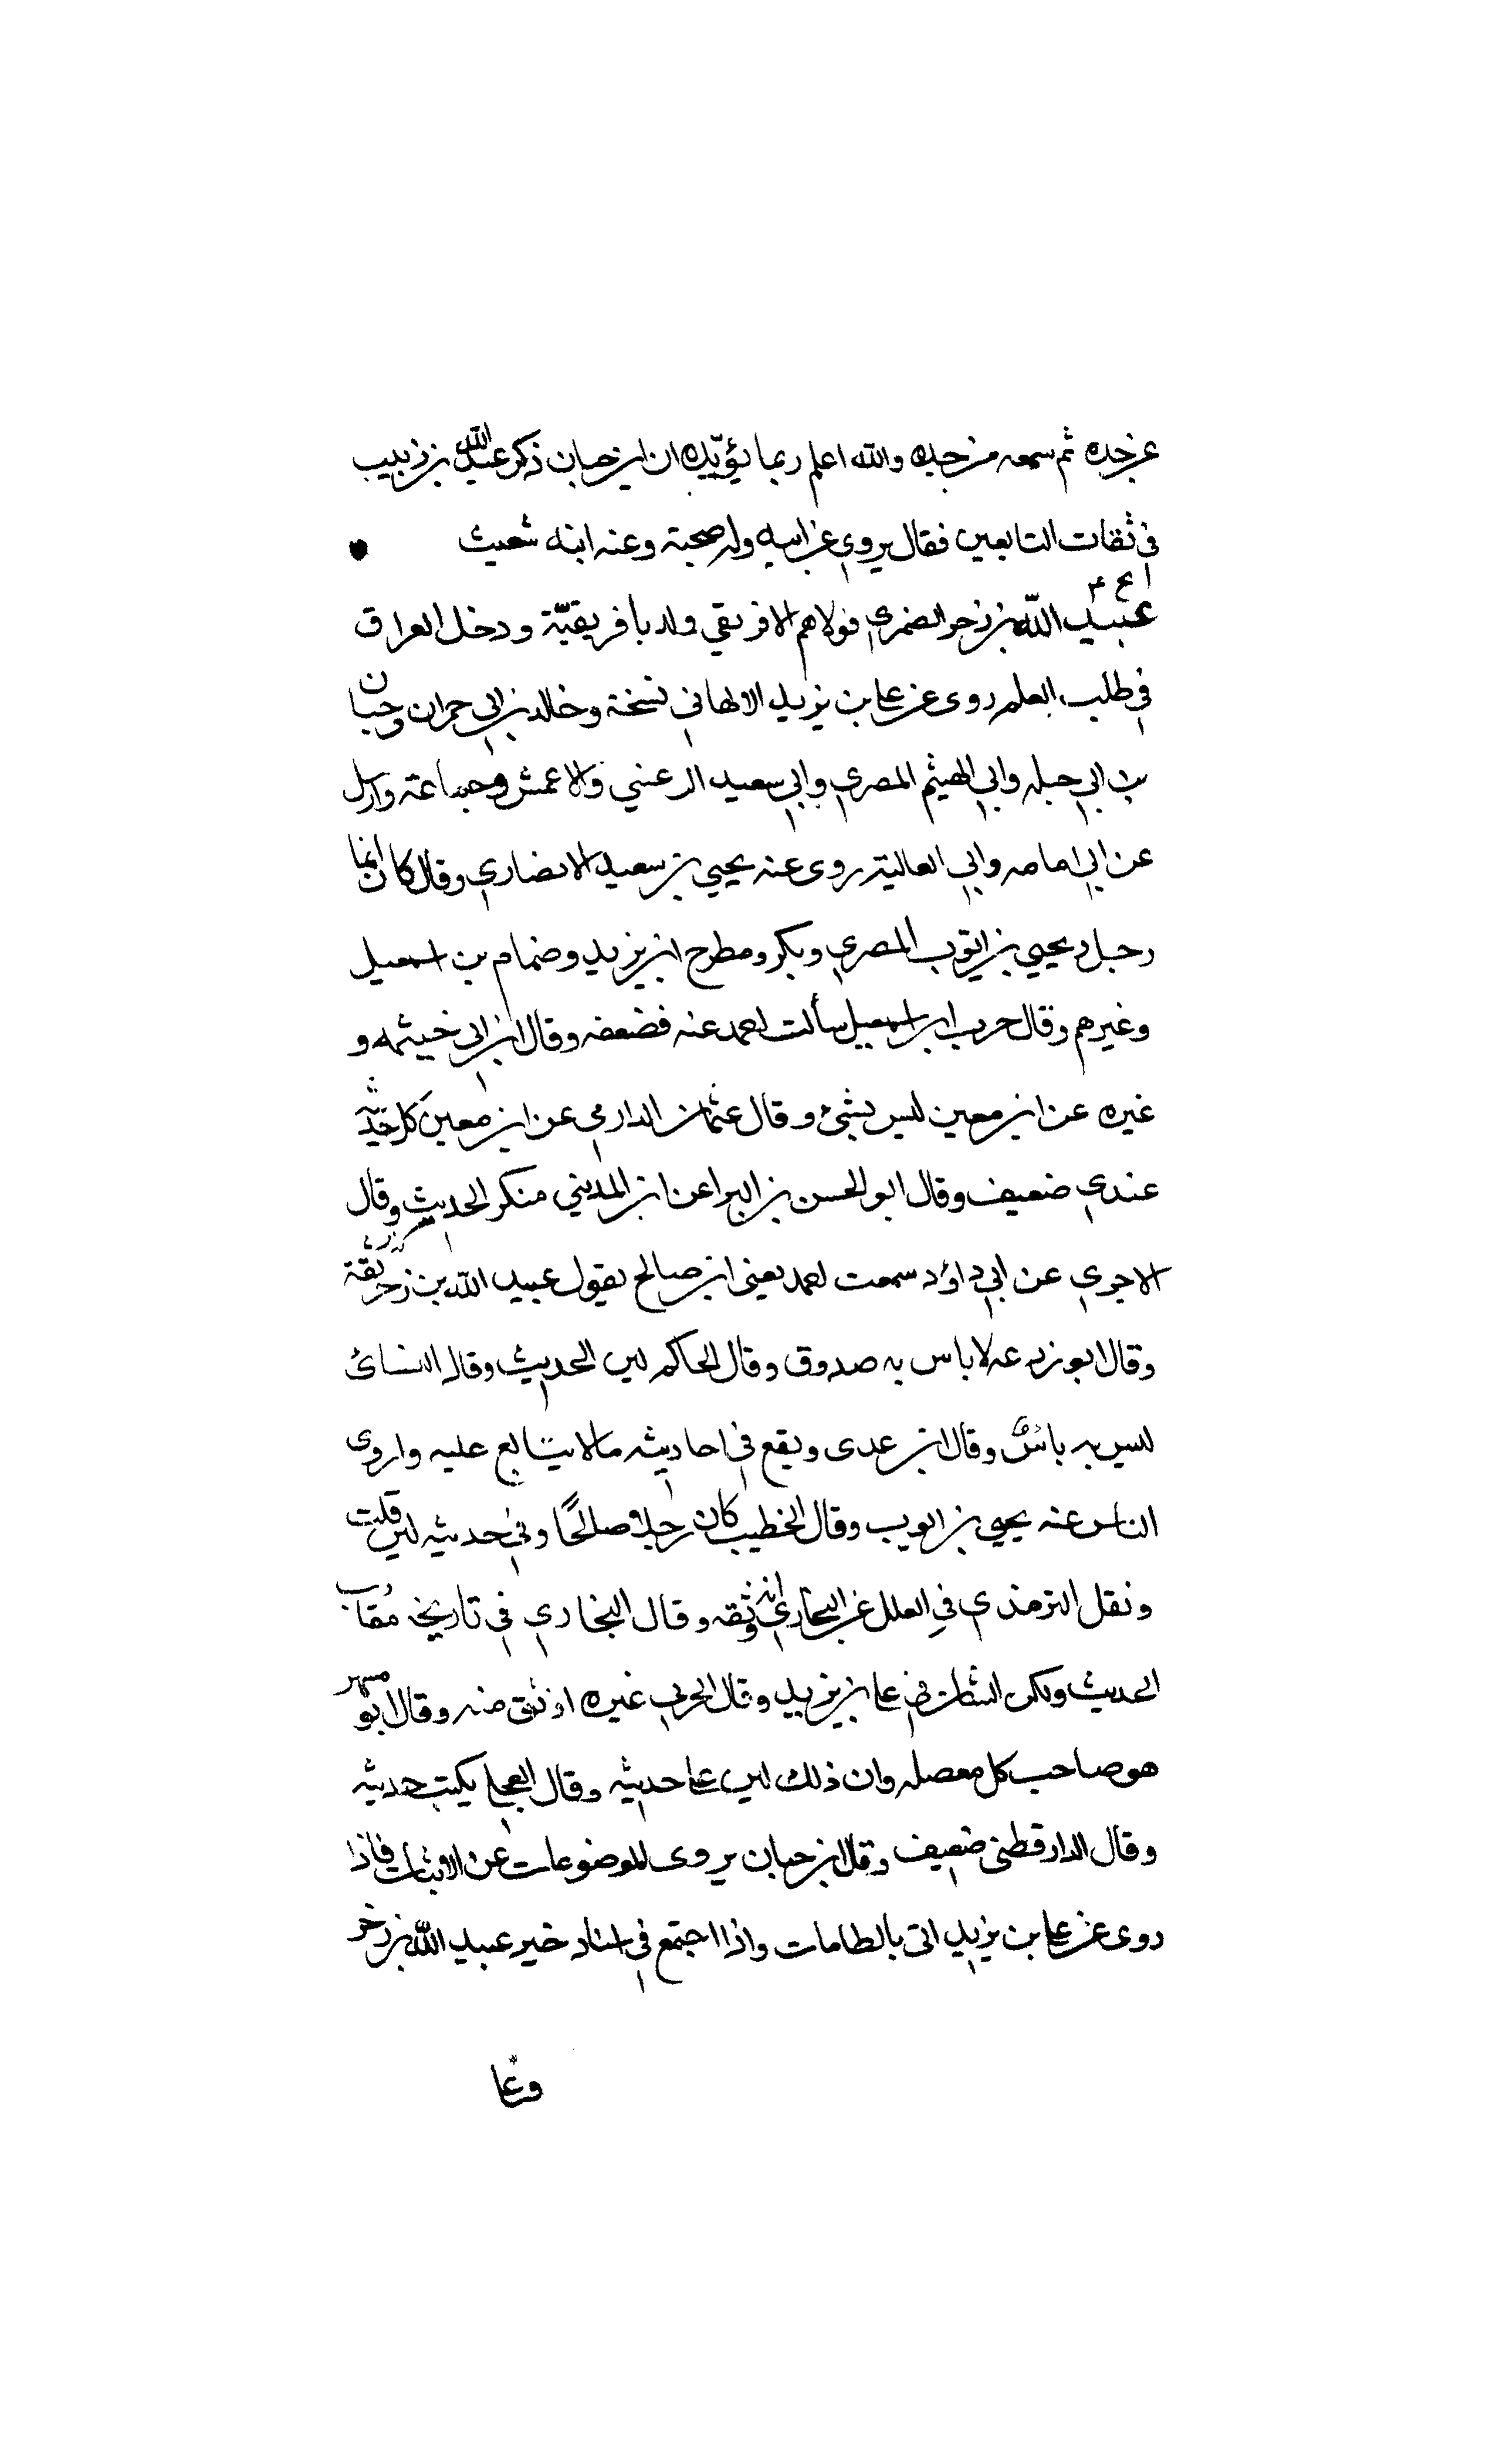 عن جده ثم سمعه من جده والله اعلم ربما يؤيده ان ابن حبان ذكر عبد الله بن زبيب
في ثقات التابعين فقال يروي عن ابيه وله صحبة وعنه ابنه شعيث
بخ ٤
عبيد الله بن زحر الضمري مولاهم الافريقي ولد بافريقيّة ودخل العراق
في طلب العلم روى عن علي بن يزيد الالهاني نسخة وخالد بن ابي حمران وحبان
بن ابي جبله وابي الهيثم المصري وابي سعيد الرعيني والاعمش وجماعة وارسل
عن ابي امامه وابي العالية روى عنه يحيي بن سعيد الانصاري وقال كان انما
رجل ويحيي بن ايوب المصري وبكر ومطرح ابن يزيد وضمام بن اسمعيل
وغيرهم وقال حرب ابن اسمعيل سألت احمد عنه فضعفه وقال ابن ابي خيثمه و
غيره عن ابن معين ليس بشئ وقال عثمان الدارمي عن ابن معين كل حديثه
عندي ضعيف وقال ابو الحسن بن البرا عن ابن المديني منكر الحديث وقال
الاجري عن ابي داؤد سمعت احمد يعني ابن صالح يقول عبيد الله بن زحر ثقة
وقال ابو زرعه لا باس به صدوق وقال الحاكم لين الحديث وقال النسائ
ليس به باس وقال ابن عدى ويقع في احاديثه مالا يتابع عليه واروى
الناس عنه يحيي بن ايوب وقال الخطيب كان رجلا صالحًا وفي حديثه لين قلت
ونقل الترمذي في العلل عن البخاري انه وثقه وقال البخاري في تاريخه مقارب
الحديث ولكن الشان في علي بن يزيد وقال الحربي غيره اوثق منه وقال ابو مسهر
هو صاحب كل معضله وان ذلك لبين علي حديثه وقال العجلي يكتب حديثه
وقال الدارقطنى ضعيف وقال ابن حبان يروى الموضوعات عن الاثبات فاذا
روى عن علي بن يزيد اتى بالطامات واذا اجتمع في اسناد خبر عبيد الله بن زحر
وعلي